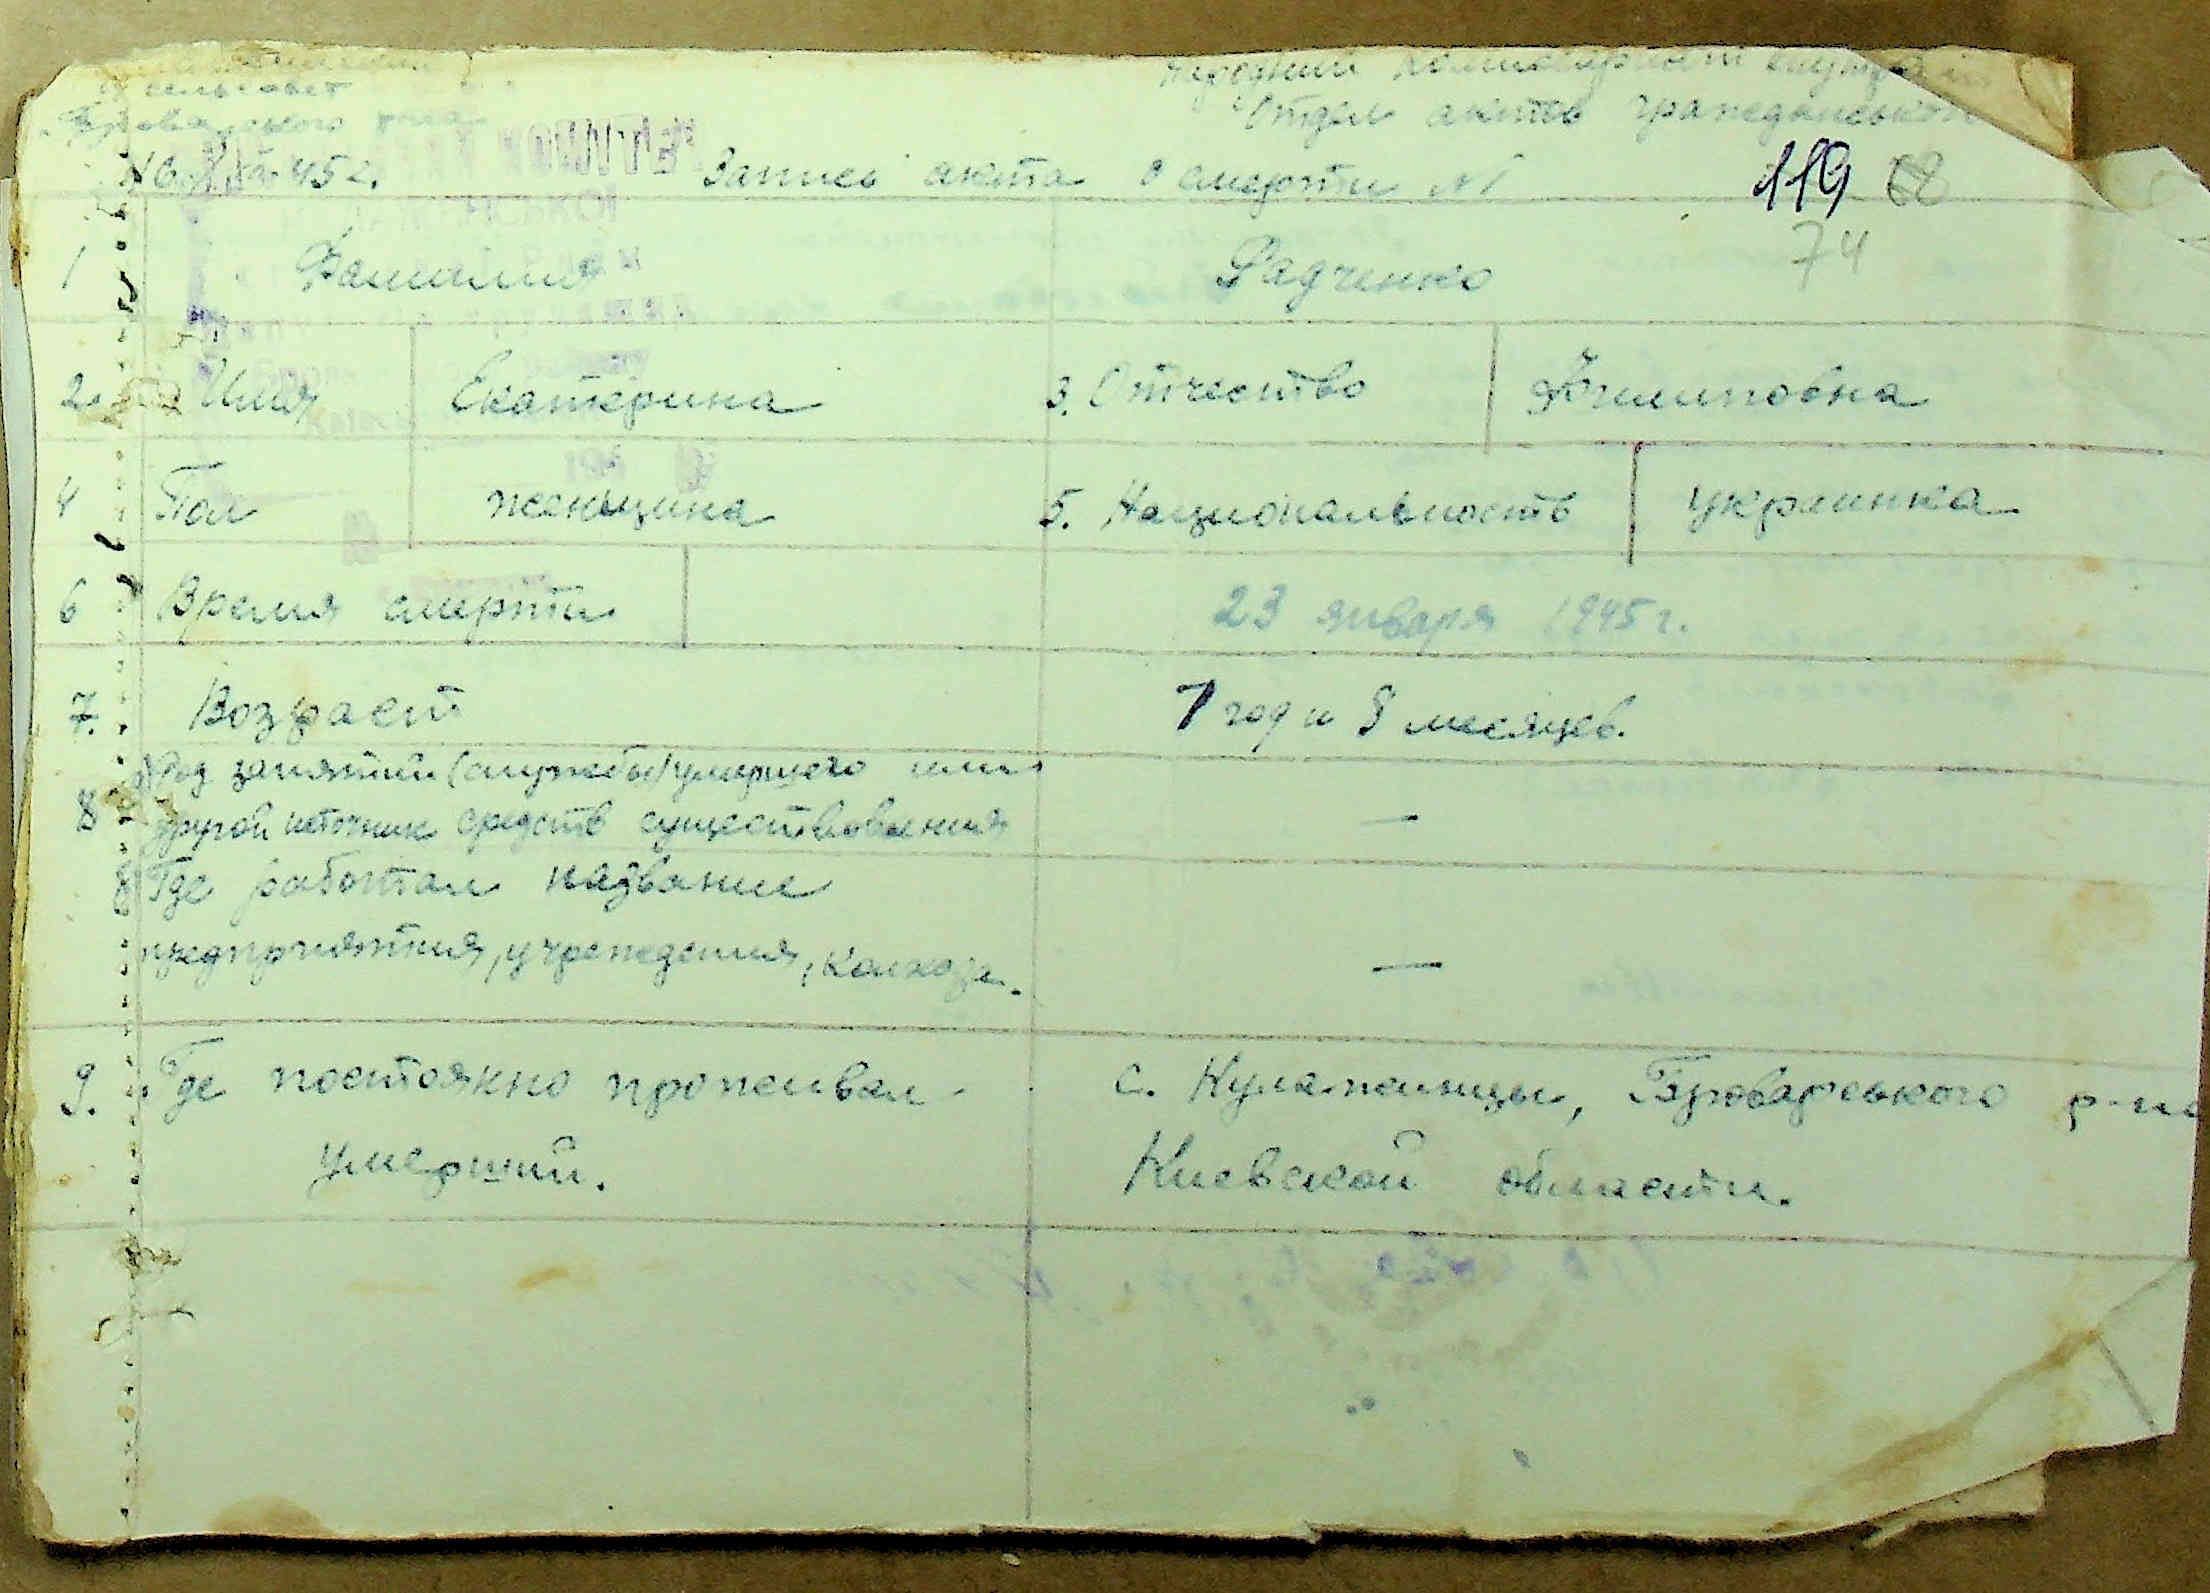 сельсовет
Народний комиссариат внутр
Отдел актов гражданськой
45 г. Запись акта о смерти № 119
74
1 Фамилия Радченко
2. Имя Екатерина 3. Отчество Филиповна
4 Пол женьщина 5. Национальность украинка
6 Время смерти 23 января 1945 г.
7. Возраст 1 год и 8 месяцев.
8 Род занятий (службы) умершего или —
другой источник средств существования
Где работал название
предприятия, учреждения, колхоза. —
9. Где постоянно проживал с. Кулаженцы, Броварського р-на
умерший. Киевской области.